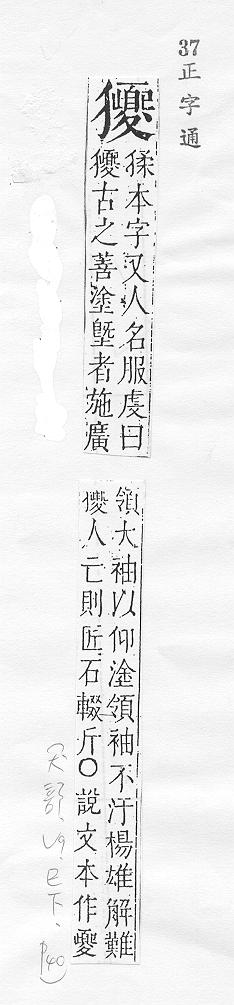 37 正字通
獿
猱本字又人名服虔曰
獿古之善塗墍者施廣
領大袖以仰塗領袖不汙楊雄解難
獿人亡則匠石輟斤〇說文本作夒
巳下、P40)